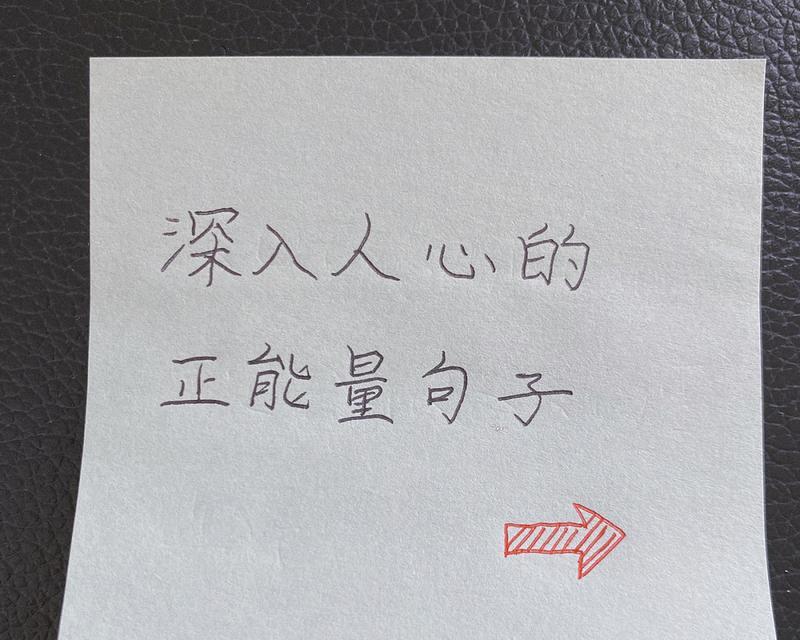 深入人心的
正能量句子